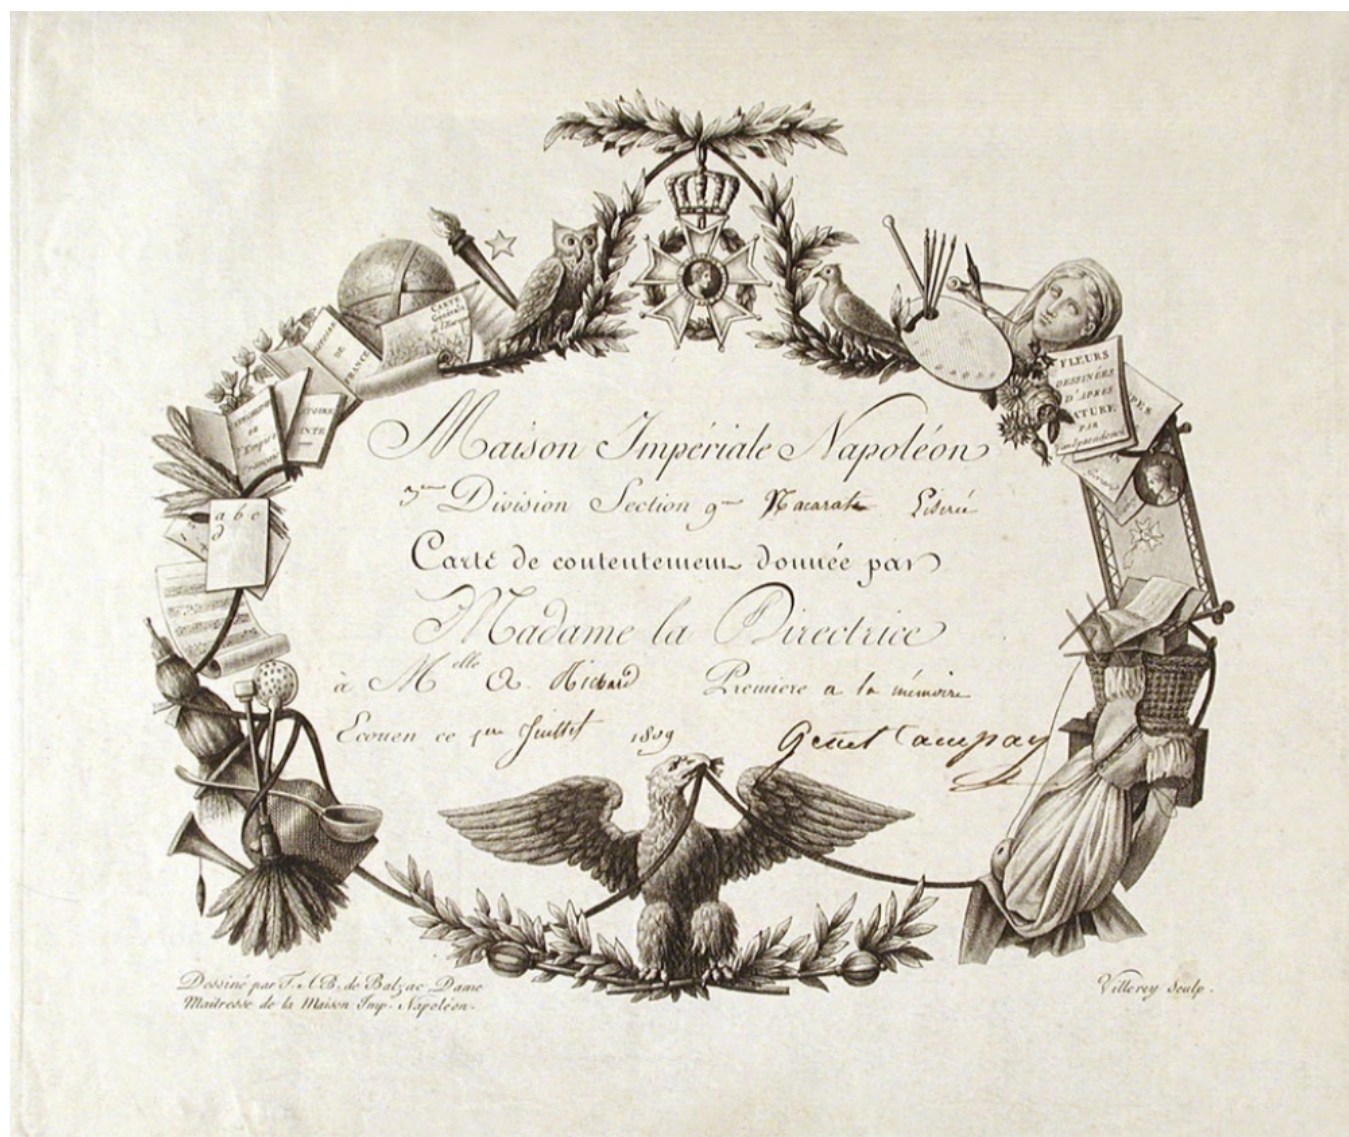 CARTE
Générale
DE
FRANCE
DE
l'Empire
Français
a b c
d
FLEURS
DESSINÉES
D'APRÈS
NATURE
PAR
Maison Impériale Napoléon
3me Division Section 9me Nacarate Liserée
Carte de contentement donnée par
Madame la Directrice
à Melle A. Richard Premiere a la mémoire
Ecouen ce 1er Juillet 1809 Genet Campan
Dessiné par T. A. B. de Balzac Dame
Maitresse de la Maison Imp. Napoléon.
Villerey Sculp.